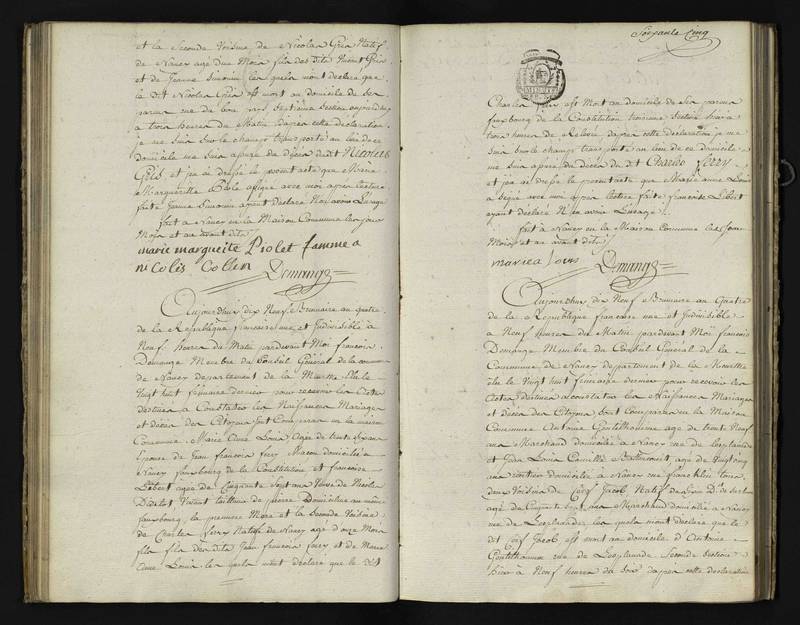 et la Seconde Voisine de Nicolas Gris Natif
de Nancy age du Mois fils des dits Vincent Gris
et de Jeanne Simonin les quels mont declaré que
le dit Nicolas Gris est mort au domicile de ses
parens rue du section aujourdhuy
a trois heures du Matin dapres cette déclaration
je me suis sur le champ transporté au lieu de ce
Domicile me suis assuré du Décés dudit Nicolas
Gris, et jen ai dressé le present acte que Marie
Marguerite Piolé a signé avec moi apres lecture
faite Jeanne Simonin ayant déclaré Navoir Lusage
fait a Nancy en la Maison Commune les jour
Mois et an avant dits
marie marguerite Piolet famme a
nicolis Collin Demange
Aujourdhuy dix Neuf Brumaire an quatre
de la République francaise une et Indivisible a
Neuf heures du Matin pardevant Moi françois
Demange Membre du Conseil Général de la commune
de Nancy departement de la Meurthe Elu le
Vingt huit frimaire dernier pour recevoir les Actes
destinés a Constater les Naissances Mariages
et décés des Citoyens sont Comparus en la maison
Commune Marie Anne Louis Agée de trente ans
Epouse de Jean françois ferry Macon domiciliée a
Nancy faubourg de la Constitution et francoise
Libert agée de Cinquante Sept ans Veuve de Nicolas
Didelot, Vivant tailleur de pierre Domiciliée au même
faubourg, la premiere Mere et la Seconde Voisine
de Charles ferry Natif de Nancy agé d'onze Mois
fils des dits Jean françois ferry et de Marie
Anne Louis les quels mont déclaré que le dit
Soixante Cinq
Charles ferry est Mort au domicile de Ses parens
faugbourg de la Constitution troisieme Section hier a
trois heures de Relevée dapres cette déclaration je me
suis sur le champ transporté au lieu de ce domicile
me suis assuré du Décés du dit Charles ferry
et jen ai dressé le present acte que Marie anne Louis
a signé avec moi apres lecture faite francoise Libert
ayant declaré N'en avoir Lusage
fait a Nancy en la Maison Commune les jour
Mois et an avant dits
marie a louis Demange
Aujourdhuy dix Neuf Brumaire an Quatre
de la République francaise une et Indivisible
a Neuf heures du Matin pardevant Moi francois
Demange Membre du Conseil Général de la
Commune de Nancy departement de la Meurthe
élu le Vingt huit frimaire dernier pour recevoir les
Actes destinés a constater les Naissances Mariages
et décés des Citoyens sont Comparus en la Maison
Commune Antoine Gentilhomme agé de trente Neuf
ans Marchand domicilié a Nancy rue de Lesplanade
et Jean Louis Camille agé de Vingt cinq
ans rentier domicilié a Nancy rue franklin tous
deux Voisins de Coëf Jacob Natif de
agé de Cinquante Sept ans Marchand domicilié a Nancy
rue de Lesplanade les quels mont declaré que le
dit Coëf Jacob est mort au domicile d'Antoine
Gentilhomme rue de Lesplanade Seconde Section
hier a Neuf heures du Soir dapres cette déclaration